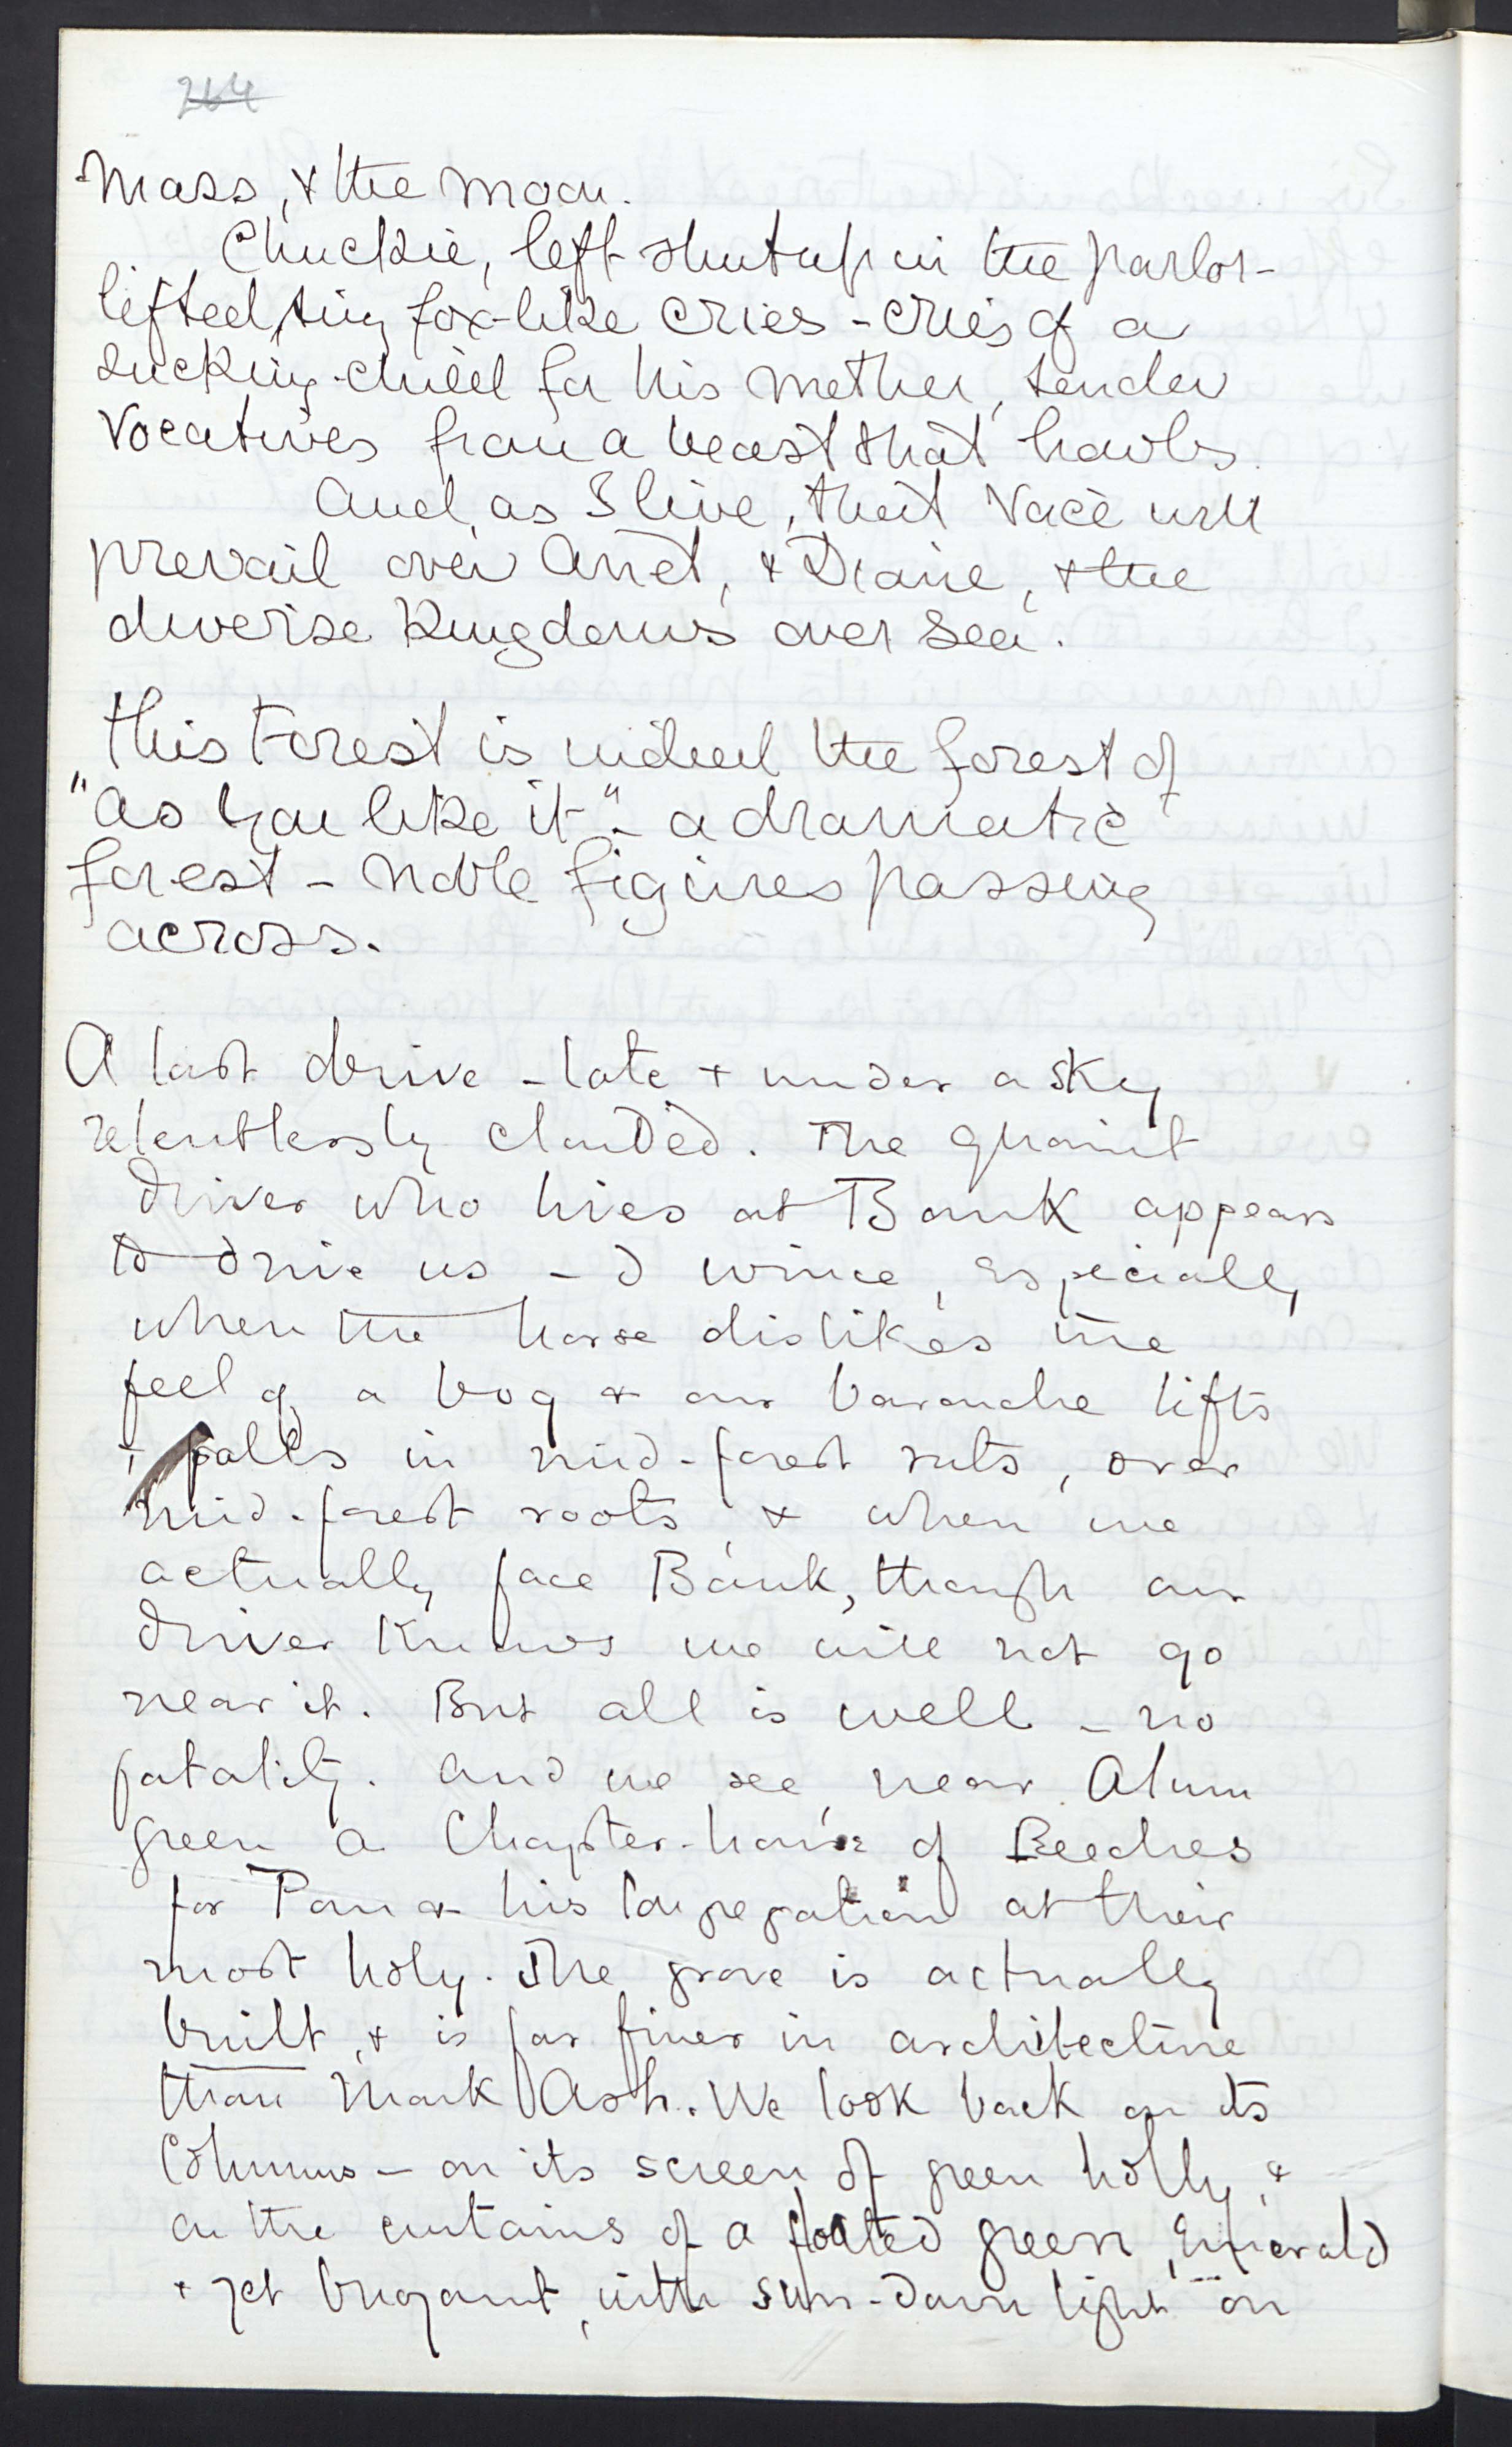 264
Mass, & the moon.
Chuckie, left shut up in the parlor -
lifted, tiny fox-like cries - cries of a
sucking-child for his mother, tender
vocatives from a beast that howls.
And, as I live, that Voice will
prevail over Anet, & Diane, & the
diverse Kingdoms over Sea.
This Forest is indeed the forest of
"As you like it" - a dramatic
forest - noble figures passing
across.
A last drive - late & under a sky
relentlessly clouded. The quaint
driver who lives at Bank appears
to drive us - I wince, especially
when the horse dislikes the
feel of a bog & our barouche lifts
& falls in mid-forest ruts, over
mid-forest roots, & when we
actually face Bank, though our
driver knows we will not go
near it. But all is well - no
fatality. And we see, near Alum
green a Chapter-house of Beeches
for Pan & his Congregation at their
most holy. The grove is actually
built, & is far finer in architecture
than Mark Ash. We look back on its
Columns - on its screen of green holly, &
on the curtains of a floated green, Emerald
& yet buoyant, with sun-down light on